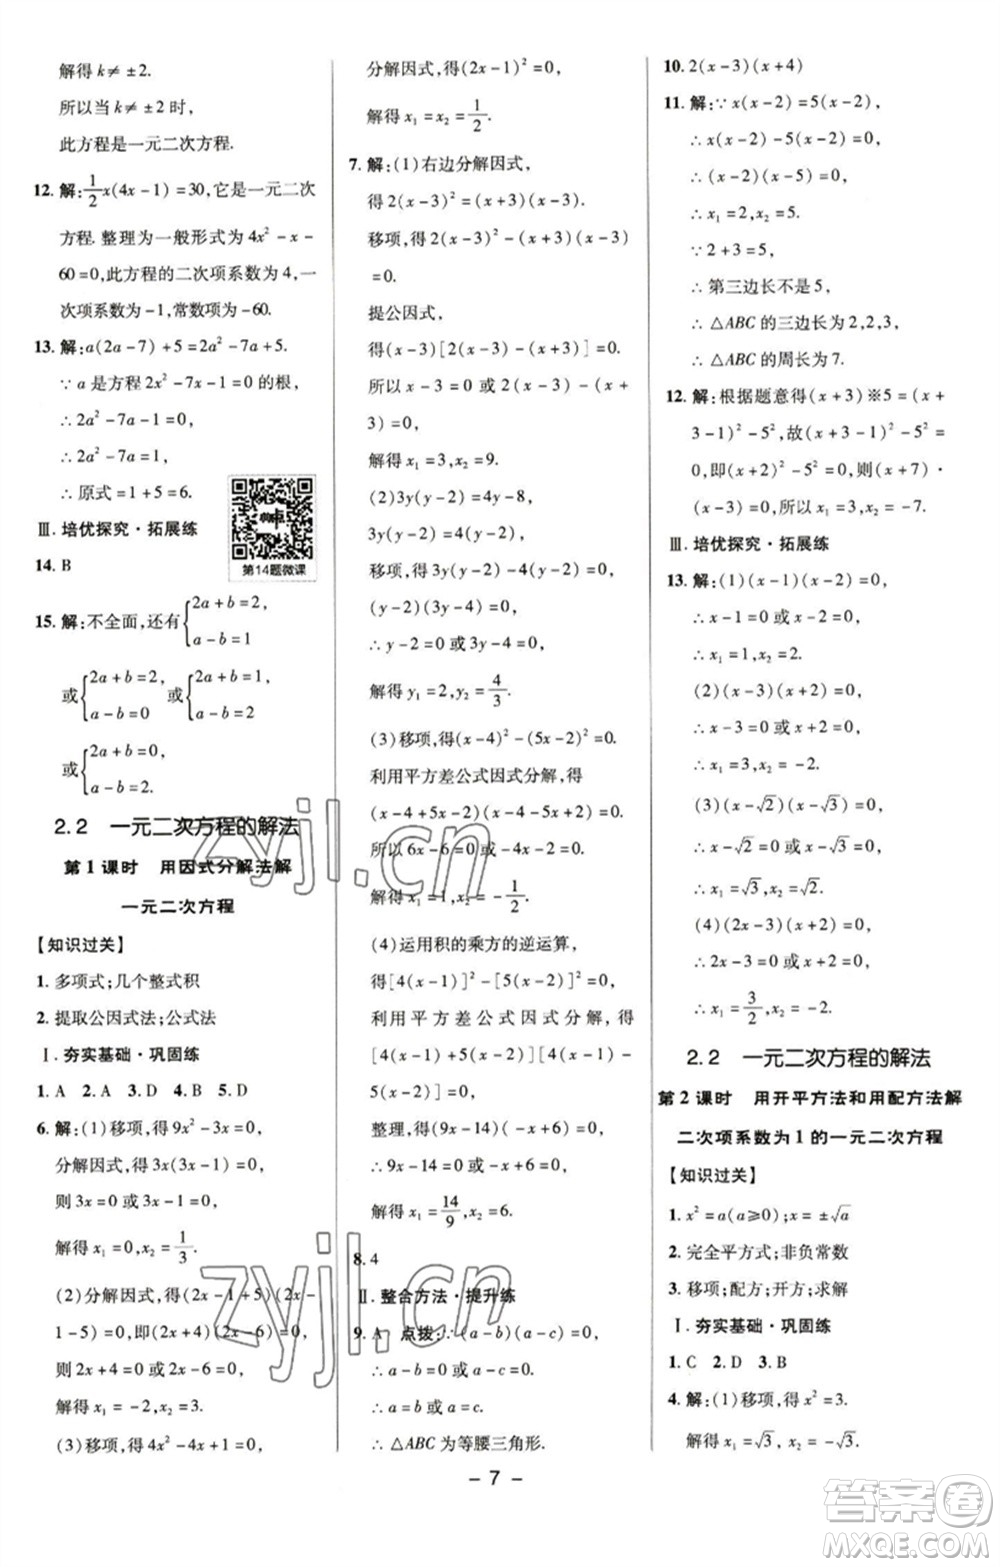 解得 k≠ ±2.
所以当 k≠ ±2 时,
此方程是一元二次方程.
12. 解: 1/2 x(4x-1)=30,它是一元二次
方程. 整理为一般形式为 4x²-x-
60=0,此方程的二次项系数为 4,一
次项系数为-1,常数项为-60.
13. 解:a(2a-7)+5=2a²-7a+5.
∵ a 是方程 2x²-7x-1=0 的根,
∴ 2a²-7a-1=0,
∴ 2a²-7a=1,
∴ 原式=1+5=6.
Ⅲ. 培优探究·拓展练
第14题微课
14. B
15. 解:不全面,还有{2a+b=2, a-b=1
或{2a+b=2, a-b=0 或{2a+b=1, a-b=2
或{2a+b=0, a-b=2.
2.2 一元二次方程的解法
第 1 课时 用因式分解法解
一元二次方程
【知识过关】
1. 多项式;几个整式积
2. 提取公因式法;公式法
Ⅰ. 夯实基础·巩固练
1. A 2. A 3. D 4. D 5. A
6. 解:(1)移项,得 9x²-3x=0,
分解因式,得 3x(3x-1)=0,
则 3x=0 或 3x-1=0,
解得 x₁=0,x₂=1/3.
(2)分解因式,得(2x-1+5)(2x-
1-5)=0,即(2x+4)(2x-6)=0,
则 2x+4=0 或 2x-6=0,
解得 x₁=-2,x₂=3.
(3)移项,得 4x²-4x+1=0,
分解因式,得(2x-1)²=0,
解得 x₁=x₂=1/2.
7. 解:(1)右边分解因式,
得 2(x-3)=(x+3)(x-3).
移项,得 2(x-3)-(x+3)(x-3)
=0.
提公因式,
得(x-3)[2(x-3)-(x+3)]=0,
所以 x-3=0 或 2(x-3)-(x+
3)=0,
解得 x₁=3,x₂=9.
(2)3y(y-2)=4y-8,
3y(y-2)-4(y-2)=0,
(y-2)(3y-4)=0,
∴ y-2=0 或 3y-4=0,
解得 y₁=2,y₂=4/3.
(3)移项,得(x-4)²-(5x-2)²=0.
利用平方差公式因式分解,得
(x-4+5x-2)(x-4-5x+2)=0,
所以 6x-6=0 或-4x-2=0,
解得 x₁=1,x₂=-1/2.
(4)运用积的乘方的逆运算,
得[4(x-1)]²-[5(x-2)]²=0,
利用平方差公式因式分解,得
[4(x-1)+5(x-2)][4(x-1)-
5(x-2)]=0,
整理,得(9x-14)(-x+6)=0,
∴ 9x-14=0 或-x+6=0,
解得 x₁=14/9,x₂=6.
8. 4
Ⅱ. 整合方法·提升练
9. A 点拨:∵(a-b)(a-c)=0,
∴ a-b=0 或 a-c=0,
∴ a=b 或 a=c,
∴ △ABC 为等腰三角形.
10. 2(x-3)(x+4)
11. 解:∵ x(x-2)=5(x-2),
∴ x(x-2)-5(x-2)=0,
∴ (x-2)(x-5)=0,
∴ x₁=2,x₂=5.
∵ 2+3=5,
∴ 第三边长不是 5,
∴ △ABC 的三边长为 2,2,3,
∴ △ABC 的周长为 7.
12. 解:根据题意得(x+3)※5=(x+
3-1)²-5²,故(x+3-1)²-5²=
0,即(x+2)²-5²=0,所以(x+7)·
(x-3)=0,所以 x₁=3,x₂=-7.
Ⅲ. 培优探究·拓展练
13. 解:(1)(x-1)(x-2)=0,
∴ x-1=0 或 x-2=0,
∴ x₁=1,x₂=2.
(2)(x-3)(x-2)=0,
∴ x-3=0 或 x-2=0,
∴ x₁=3,x₂=2.
(3)(x-√2)(x-√3)=0,
∴ x-√2=0 或 x-√3=0,
∴ x₁=√3,x₂=√2.
(4)(2x-3)(x+2)=0,
∴ 2x-3=0 或 x+2=0,
∴ x₁=3/2,x₂=-2.
2.2 一元二次方程的解法
第 2 课时 用开平方法和用配方法解
二次项系数为 1 的一元二次方程
【知识过关】
1. x²=a(a≥0);x=±√a
2. 完全平方式;非负常数
3. 移项;配方;开方;求解
Ⅰ. 夯实基础·巩固练
1. C 2. D 3. B
4. 解:(1)移项,得 x²=3.
解得 x₁=√3,x₂=-√3.
- 7 -
zyjl.cn
zyjl.cn
答案圈
MXQE.COM